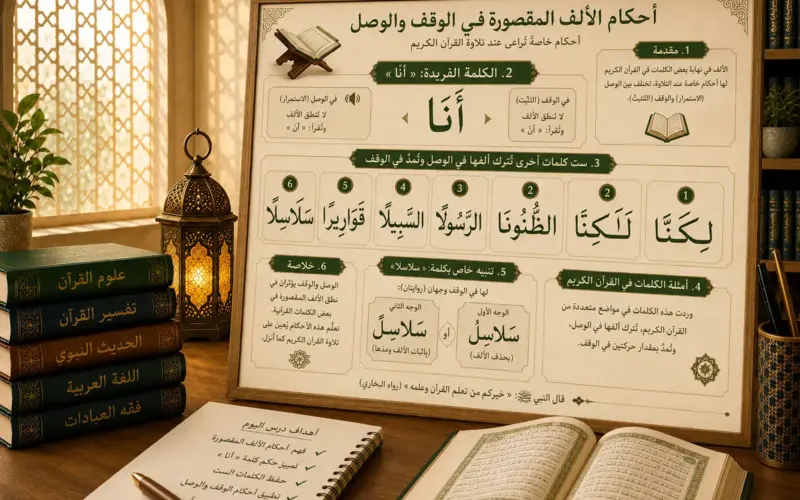 أحكام الألف المقصورة في الوقف والوصل
أحكام خاصة تُراعى عند تلاوة القرآن الكريم
1. مقدمة
الألف في نهاية بعض الكلمات في القرآن الكريم
لها أحكام خاصة عند التلاوة، تختلف بين الوصل
(الاستمرار) والوقف (التثبيت).
2. الكلمة الفريدة: « أَنَا »
في الوقف (التثبّت)
لا تُنطق الألف
وتُقرأ: « أنَ »
أَنَا
في الوصل (الاستمرار)
لا تُنطق الألف
وتُقرأ: « أنَ »
3. ست كلمات أخرى تُترك ألفها في الوصل وتُمدّ في الوقف
1
لِكَنَّا
2
2
الظُّنُونَا
3
الرَّسُولَا
4
السَّبِيلَا
5
قَوَارِيرًا
6
سَلَاسِلًا
4. أمثلة الكلمات في القرآن الكريم
وردت هذه الكلمات في مواضع متعددة من
القرآن الكريم، تُترك ألفها في الوصل،
وتُمدّ بمقدار حركتين في الوقف.
5. تنبيه خاص بكلمة: « سلاسلا »
لها في الوقف وجهان (روايتان):
الوجه الأول
سَلَاسِلْ
(بحذف الألف)
أو
الوجه الثاني
سَلَاسِلً
(بإثبات الألف ومدها)
6. خلاصة
الوصل والوقف يؤثران في
نطق الألف المقصورة في
بعض الكلمات القرآنية.
تعلّم هذه الأحكام يُعين على
تلاوة القرآن الكريم كما أُنزل.
قال النبي ﷺ: « خيركم من تعلم القرآن وعلمه » (رواه البخاري)
علوم القرآن
تفسير القرآن
الحديث النبوي
اللغة العربية
فقه العبادات
أهداف درس اليوم
فهم أحكام الألف المقصورة ✓
تمييز حكم كلمة « أنا » ✓
حفظ الكلمات الست ✓
تطبيق أحكام الوقف والوصل ✓